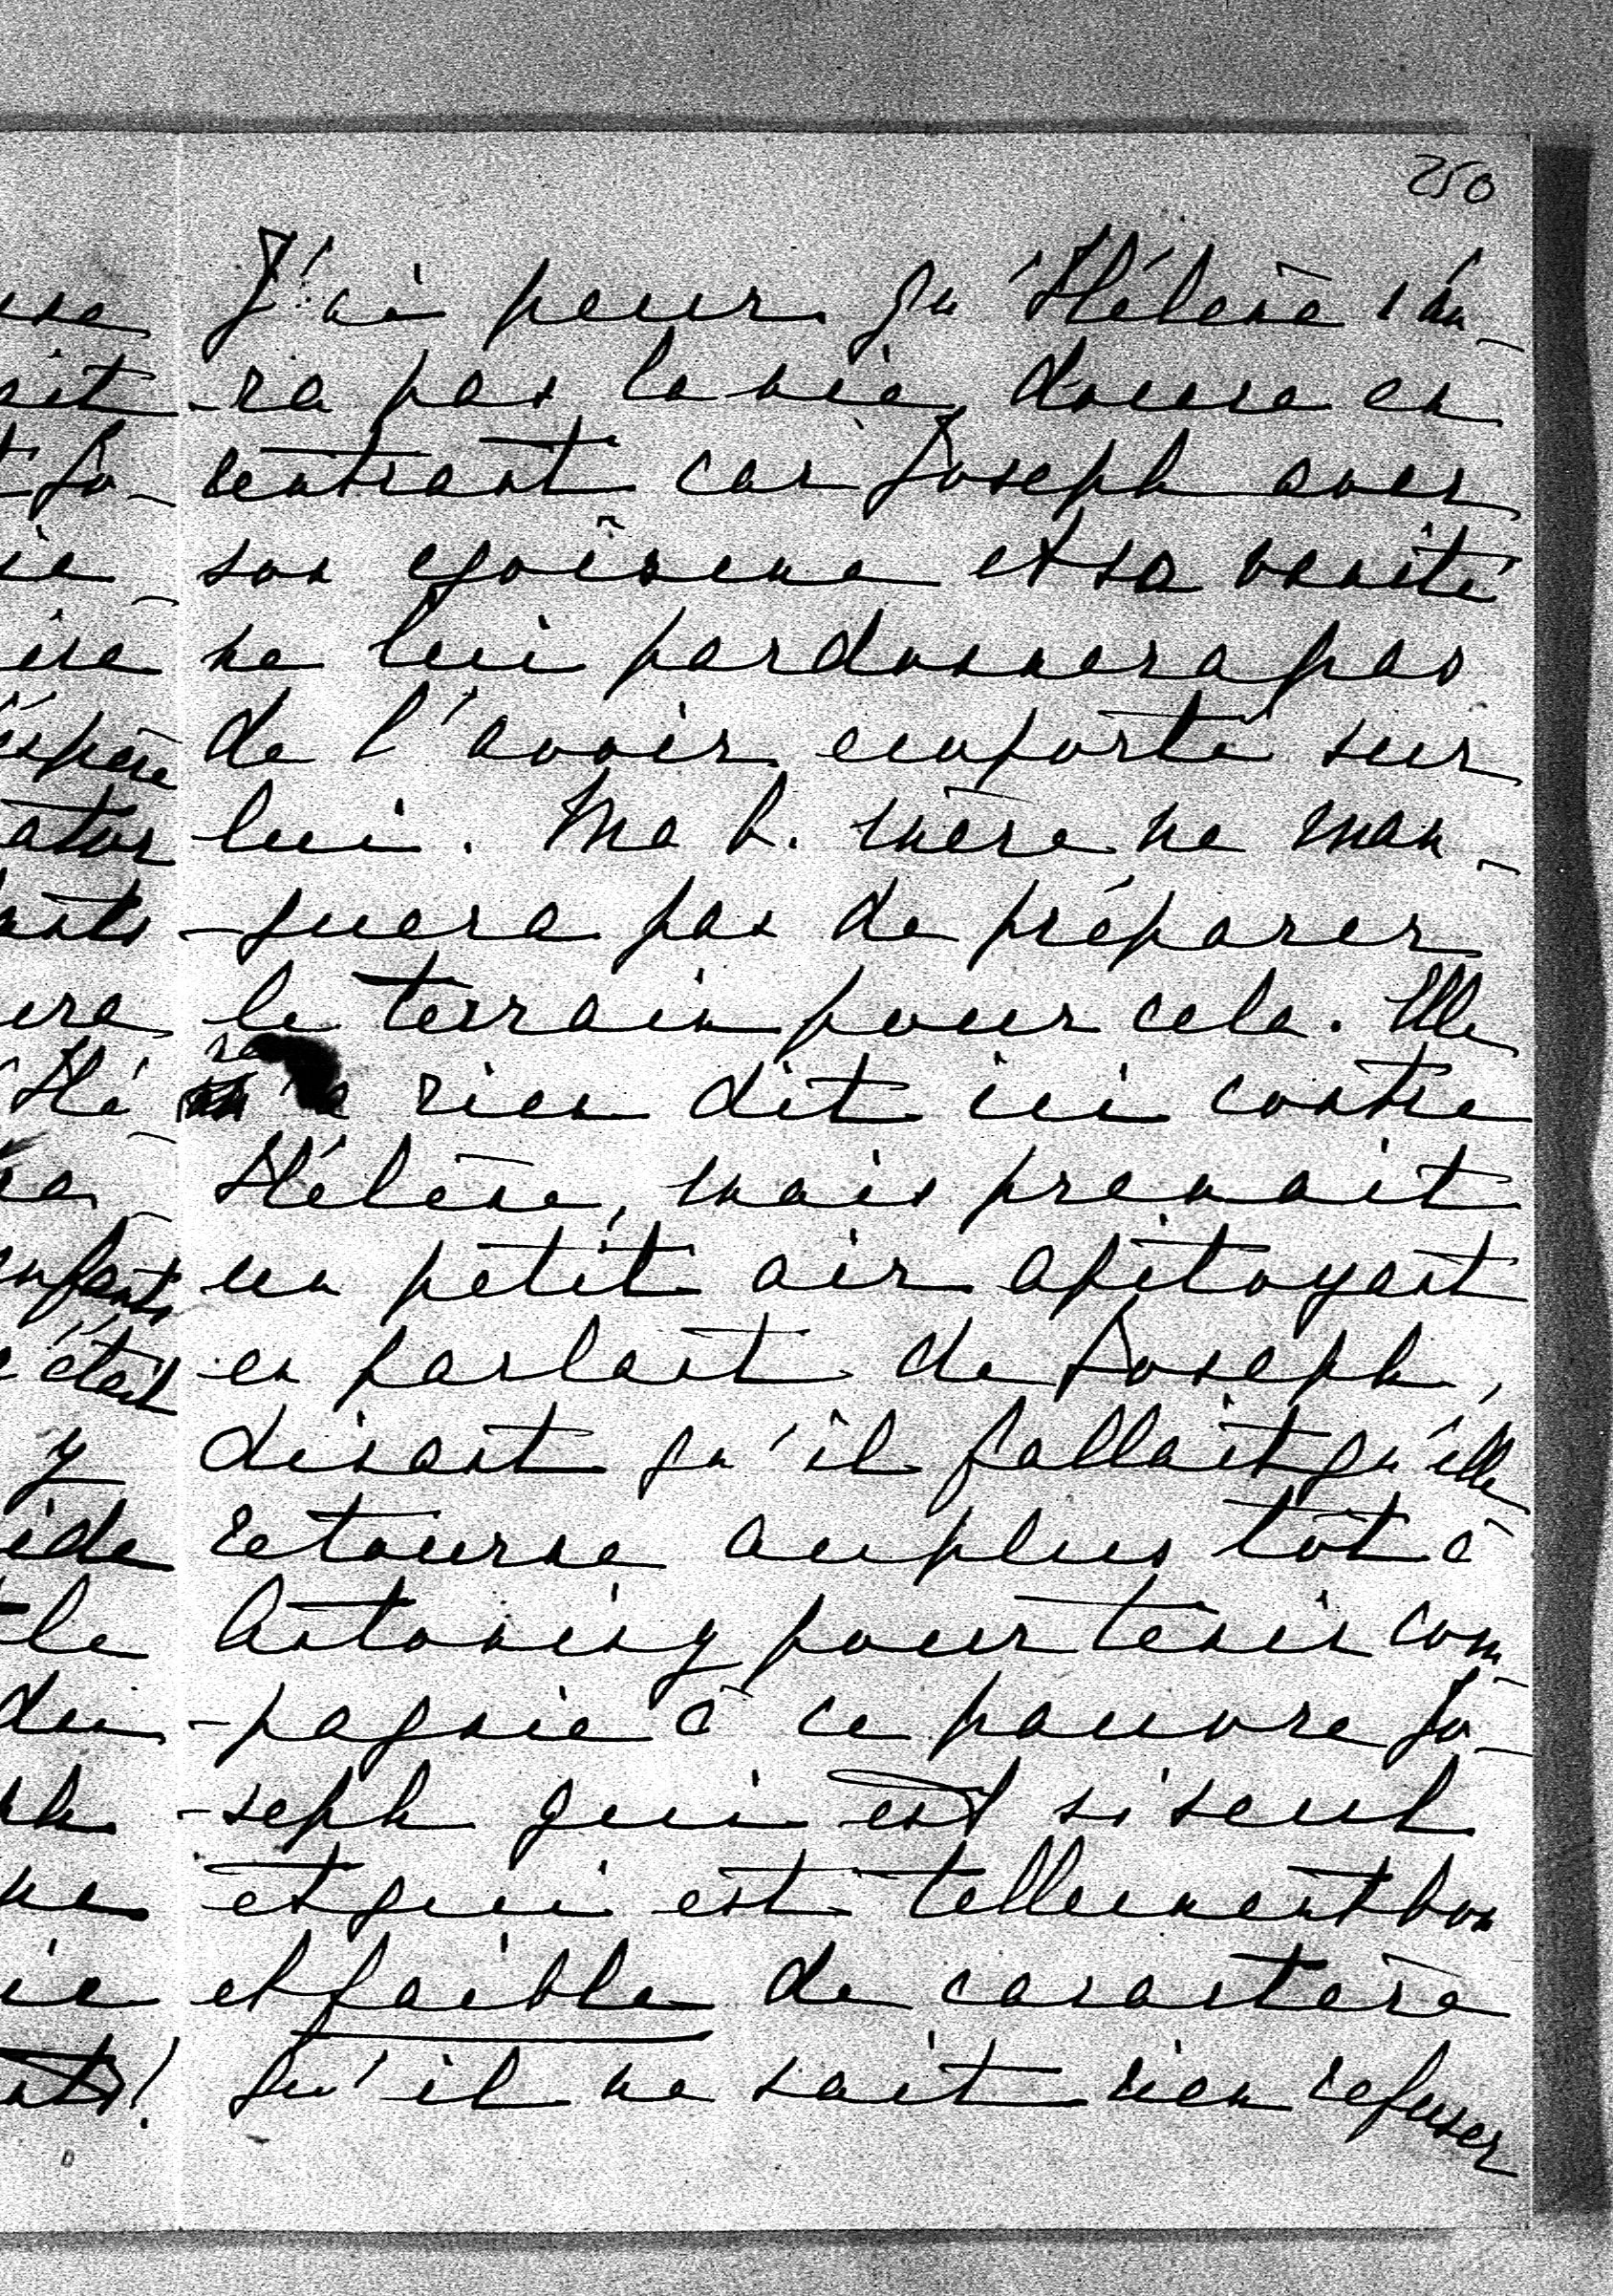 250
J'ai peur qu'Hélène n'au-
-ra pas la vie douce en
rentrant car Joseph avec
son egoïsme et sa vanité
ne lui pardonnera pas
de l'avoir emporté sur
lui. Ma b. mère ne man-
-quera pas de préparer
le terrain pour cela. Elle
rien dit ici contre
Hélène, mais prenait
un petit air apitoyant
en parlant de Joseph,
disant qu'il fallait qu'elle
retourne au plus tôt à
Antoniny pour tenir com-
-pagnie à ce pauvre Jo-
-seph qui est si seul
et qui est tellement bon
et faible de caractère
qu'il ne sait rien refuser